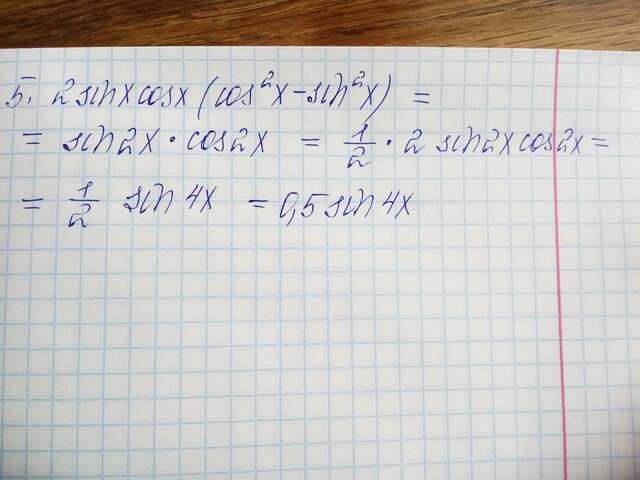 5. 2 sin x cos x (cos²x - sin²x) =
= sin 2x · cos 2x = 1/2 · 2 sin 2x cos 2x =
= 1/2 sin 4x = 0,5 sin 4x